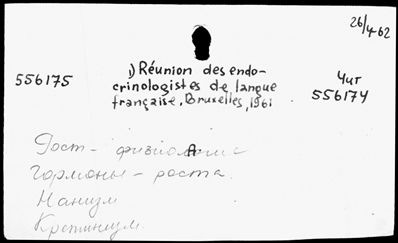 26/4-62
1) Réunion des endo-
556175 crinologistes de langue Чит
française, Bruxelles, 1961 556174
Рост - физиология
Гормоны - роста.
Нанизм
Кретинизм.